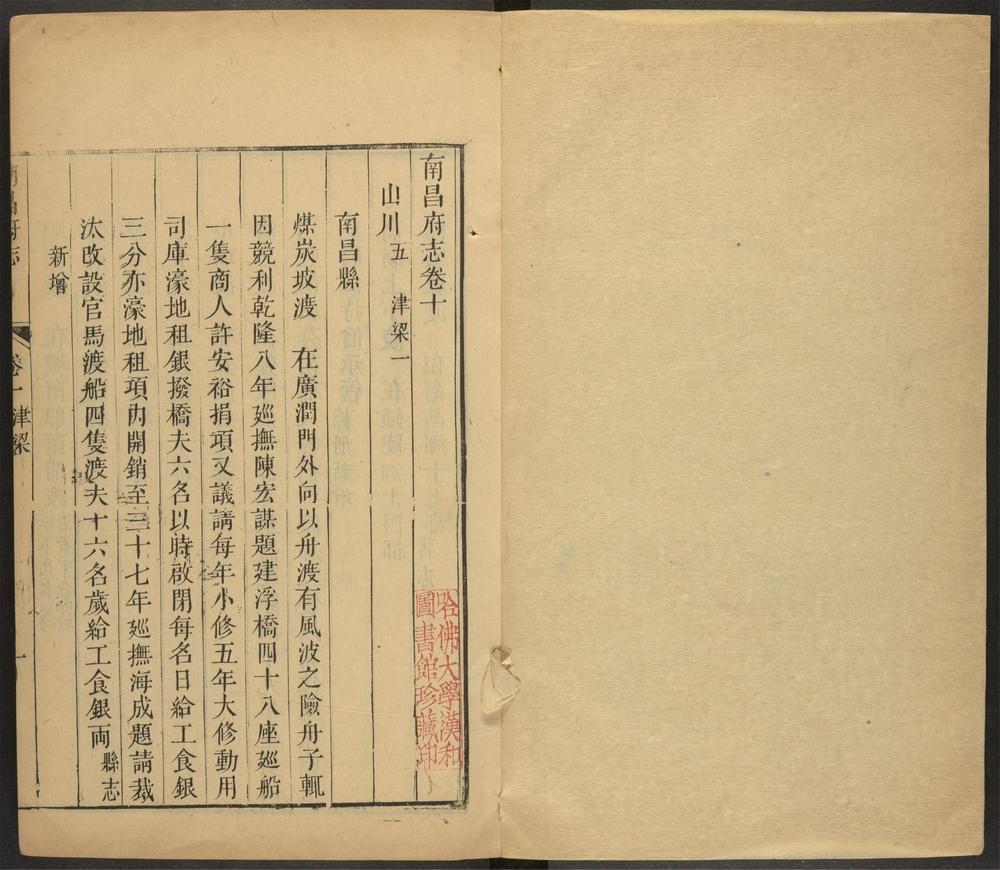 南昌府志卷十
山川五 津梁一
南昌縣
煤炭坡渡 在廣潤門外向以舟渡有風波之險舟子輒
因競利乾隆八年廵撫陳宏謀題建浮橋四十八座廵船
一隻商人許安裕捐項又議請每年小修五年大修動用
司庫濠地租銀撥橋夫六名以時啟閉每名日給工食銀
三分亦濠地租項內開銷至三十七年廵撫海成題請裁
汰改設官馬渡船四隻渡夫十六名歲給工食銀兩縣志
新增
南昌府志
卷十 津梁
一
哈佛大學漢和
圖書館珍藏印